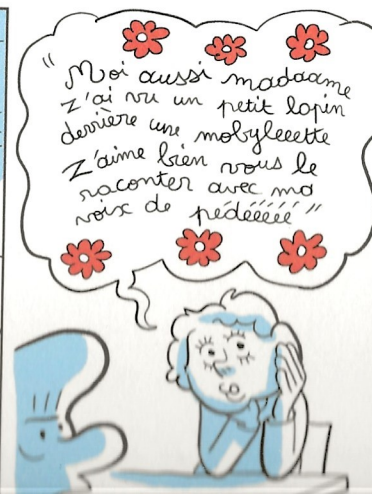 "Moi aussi madaame
z'ai vu un petit lapin
derrière une mobyleeette
z'aime bien vous le
raconter avec ma
voix de pédééééé"